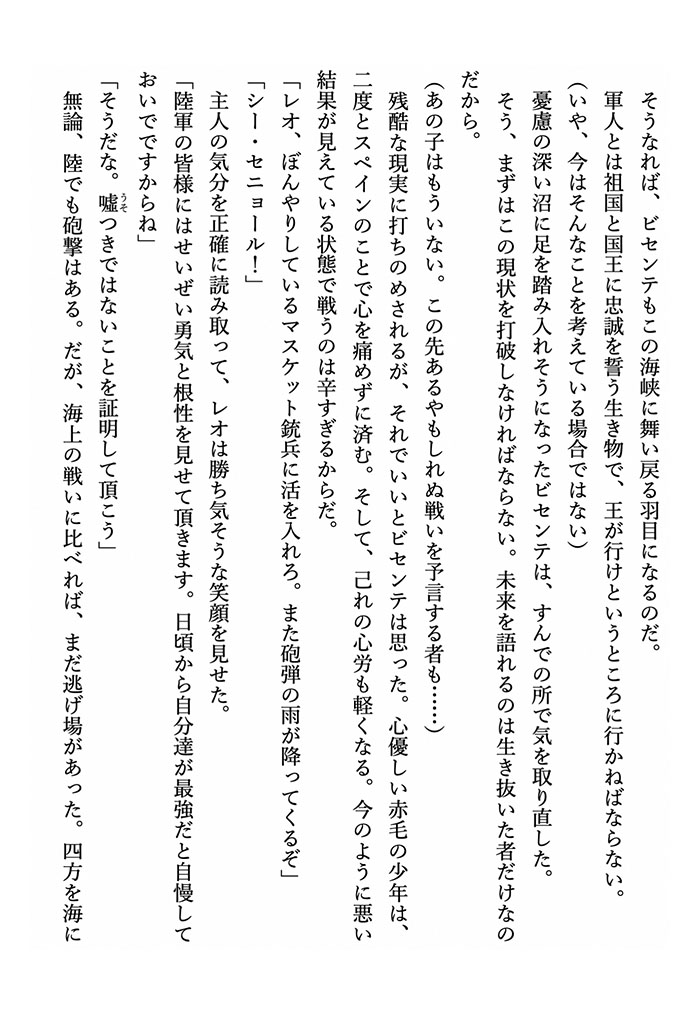 そうなれば、ビセンテもこの海峡に舞い戻る羽目になるのだ。
軍人とは祖国と国王に忠誠を誓う生き物で、王が行けというところに行かねばならない。
(いや、今はそんなことを考えている場合ではない)
憂慮の深い沼に足を踏み入れそうになったビセンテは、すんでの所で気を取り直した。
そう、まずはこの現状を打破しなければならない。未来を語れるのは生き抜いた者だけなの
だから。
(あの子はもういない。この先あるやもしれぬ戦いを予言する者も……)
残酷な現実に打ちのめされるが、それでいいとビセンテは思った。心優しい赤毛の少年は、
二度とスペインのことで心を痛めずに済む。そして、己れの心労も軽くなる。今のように悪い
結果が見えている状態で戦うのは辛すぎるからだ。
「レオ、ぼんやりしているマスケット銃兵に活を入れろ。また砲弾の雨が降ってくるぞ」
「シー・セニョール！」
主人の気分を正確に読み取って、レオは勝ち気そうな笑顔を見せた。
「陸軍の皆様にはせいぜい勇気と根性を見せて頂きます。日頃から自分達が最強だと自慢して
おいでですからね」
「そうだな。嘘うそつきではないことを証明して頂こう」
無論、陸でも砲撃はある。だが、海上の戦いに比べれば、まだ逃げ場があった。四方を海に